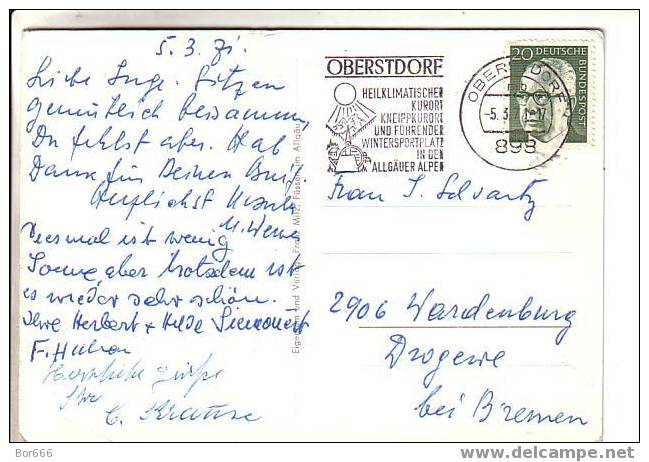 5.3.71.
Liebe Inge. Sitzen
gemütlich beisammen,
Du fehlst aber. Hab
Dank für Deinen Brief.
Herzlichst Ursula
u. Werner
Diesmal ist wenig
Sonne, aber trotzdem ist
es wieder sehr schön.
Ihre Herbert + Hilde
F.
Herzliche Grüße
Ihre
C. Krause
Eigentum und Verlag: Franz Milz, Füssen im Allgäu
OBERSTDORF
HEILKLIMATISCHER
KURORT
KNEIPPKURORT
UND FÜHRENDER
WINTERSPORTPLATZ
IN DEN
ALLGÄUER ALPEN
OBERSTDORF
-5.3.
-17
898
20 DEUTSCHE
BUNDESPOST
Frau I. Schwartz
2906 Wardenburg
Drogewe
bei Bremen
Bor666
www.delcampe.net